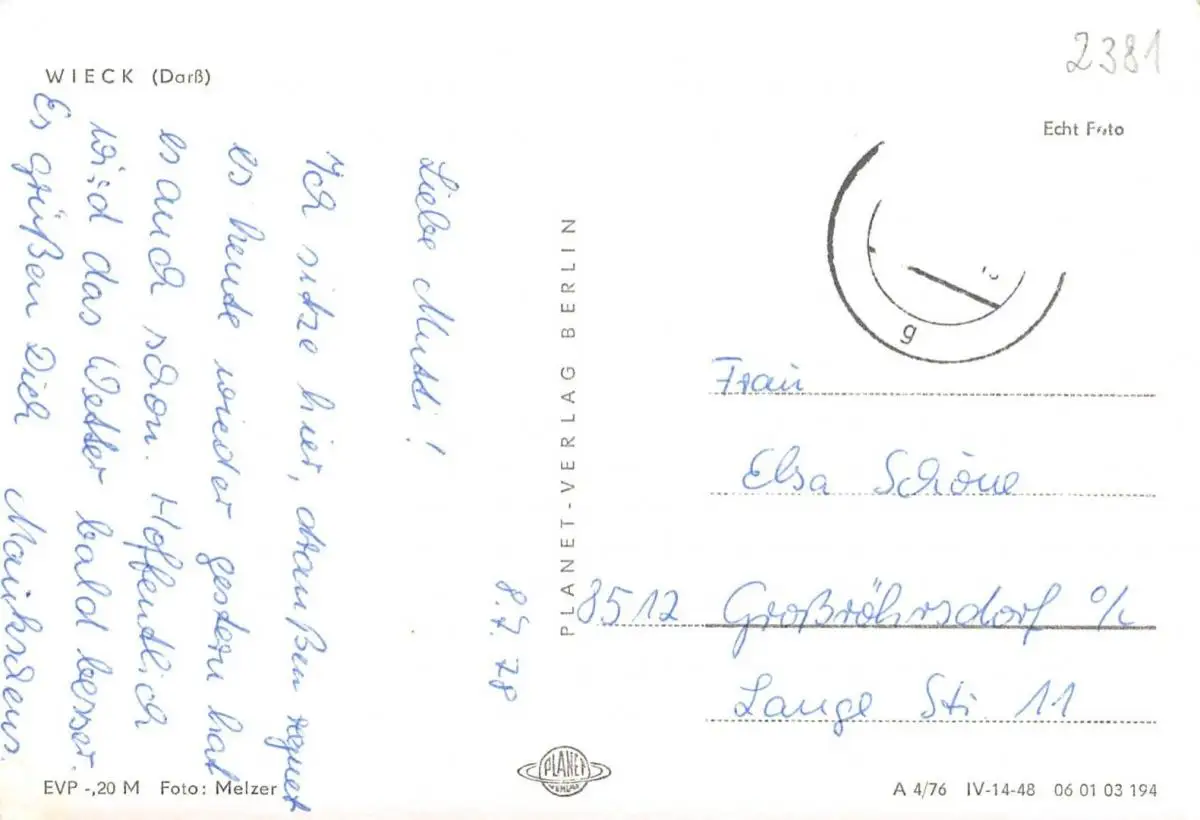 WIECK (Darß)
8.7.78
Liebe Mutti!
Ich sitze hier, draußen regnet
es heute wieder gestern hat
es auch schon. Hoffentlich
wird das Wetter bald besser.
Es grüßen Dich
EVP -,20 M Foto: Melzer
PLANET-VERLAG BERLIN
PLANET
VERLAG
2381
Echt Foto
g
Frau
Elsa Schöne
8512 Großröhrsdorf
Lange Str. 11
A 4/76 IV-14-48 06 01 03 194